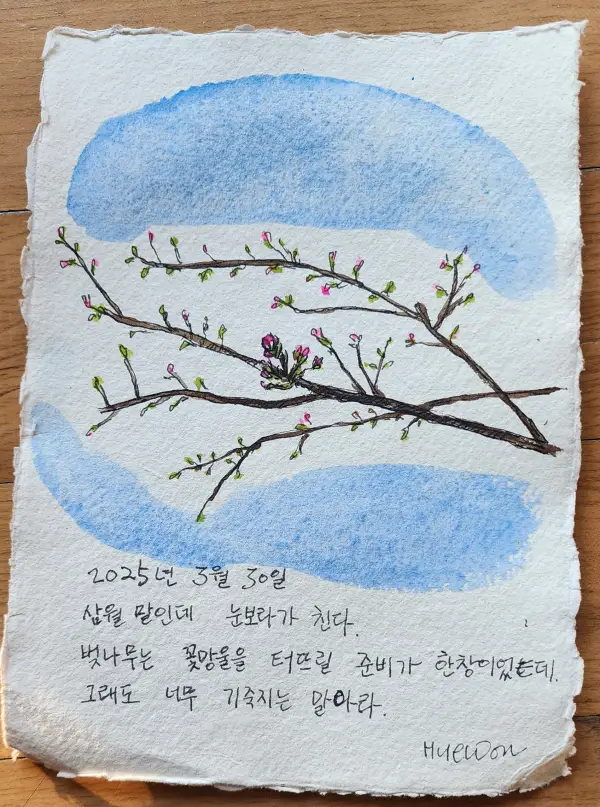 2025년 3월 30일
삼월 말인데 눈보라가 친다.
벚나무는 꽃망울을 터뜨릴 준비가 한창이었는데.
그래도 너무 기죽지는 말아라.
HueWon